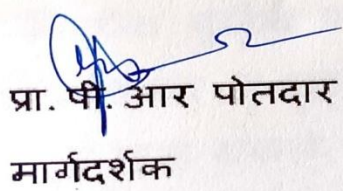 प्रा. पी. आर पोतदार
मार्गदर्शक